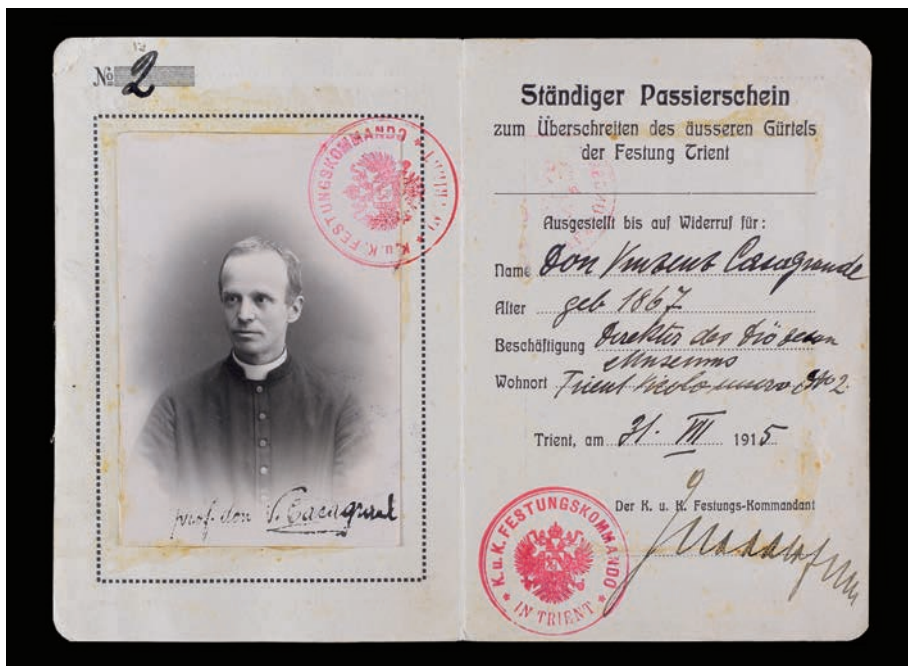 No 2
K. u. K. FESTUNGSKOMMANDO
prof. don V. Casagrand
Ständiger Passierschein
zum Überschreiten des äusseren Gürtels
der Festung Trient
Ausgestellt bis auf Widerruf für:
Name Don Vinzenz Casagrande
Alter geb 1867
Beschäftigung Direktor des Diözesan
Museums
Wohnort Trient Vicolo No 2
Trient, am 31. VII 1915
Der K. u. K. Festungs-Kommandant
K. u. K. FESTUNGSKOMMANDO
IN TRIENT